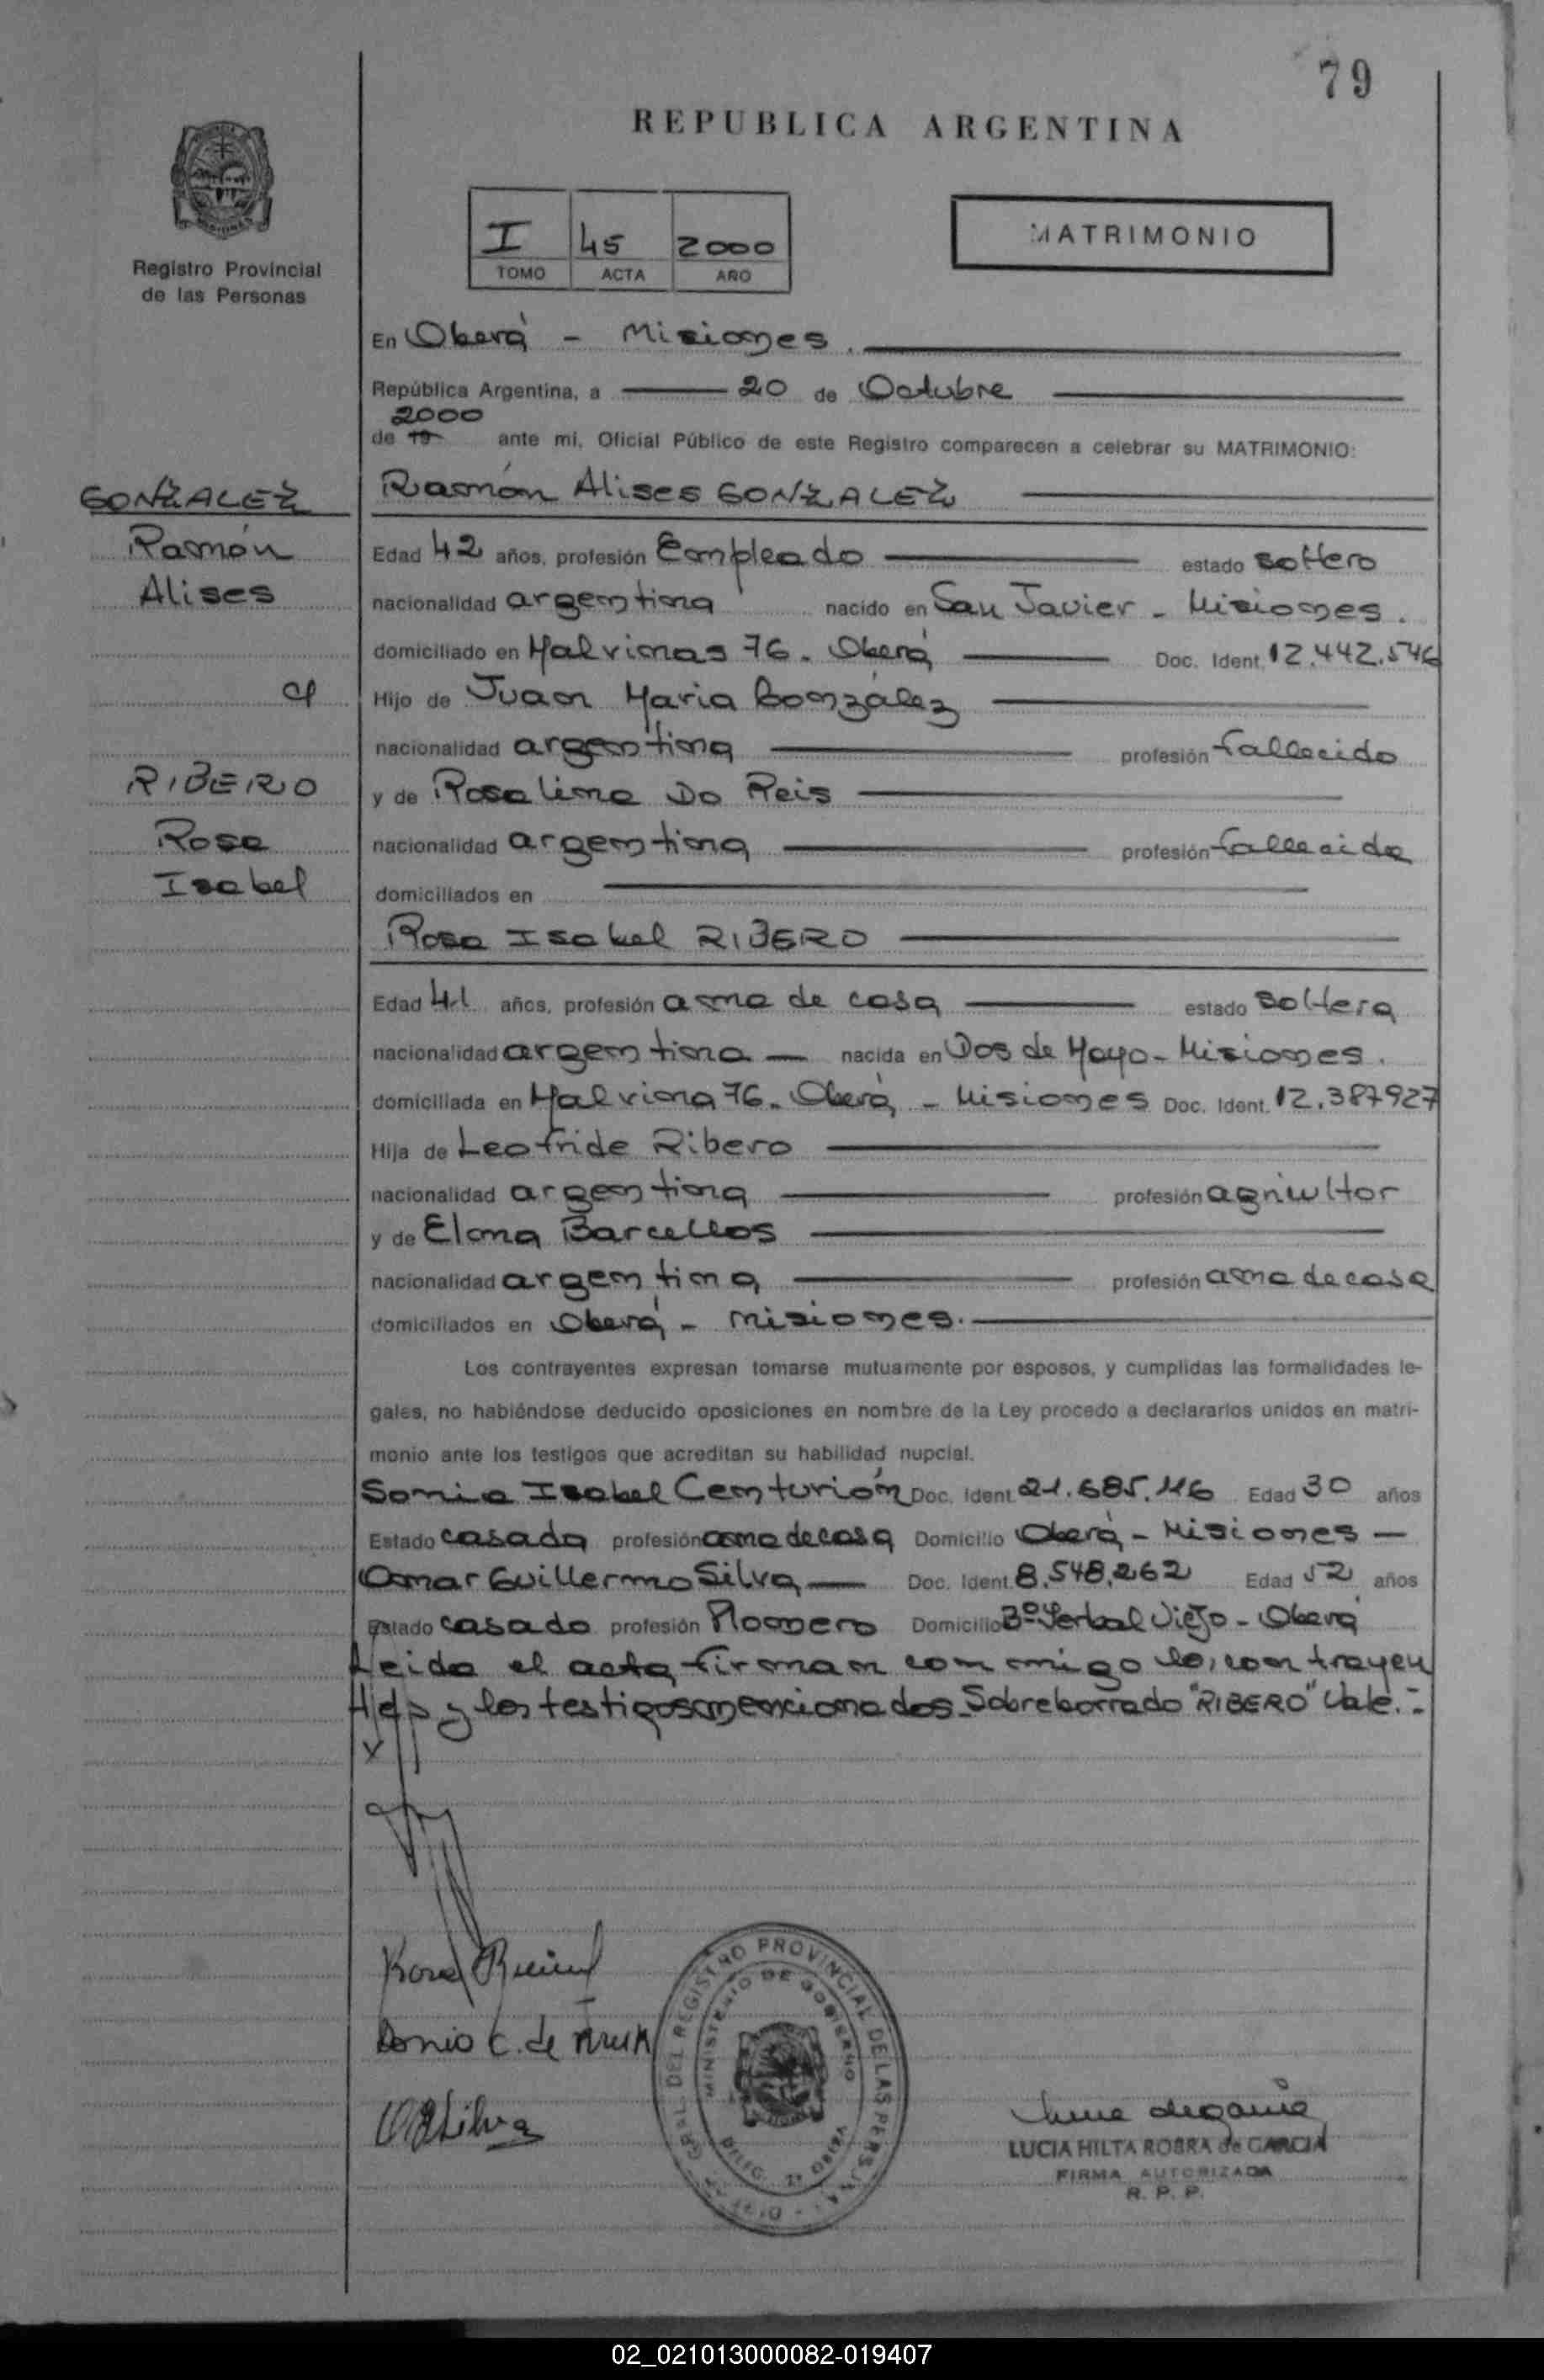 79
REPUBLICA ARGENTINA
Registro Provincial
de las Personas
I 45 2000
TOMO ACTA AÑO
MATRIMONIO
En Oberá - Misiones.
República Argentina, a 20 de Octubre
2000
de 19 ante mí, Oficial Público de este Registro comparecen a celebrar su MATRIMONIO:
GONZALEZ
Ramón
Alises
c/
RIBERO
Rosa
Isabel
Ramón Alises GONZALEZ
Edad 42 años, profesión Empleado estado soltero
nacionalidad argentina nacido en San Javier - Misiones.
domiciliado en Malvinas 76. Oberá Doc. Ident. 12.442.546
Hijo de Juan Maria González
nacionalidad argentina profesión fallecido
y de Rosalina Do Reis
nacionalidad argentina profesión fallecida
domiciliados en
Rosa Isabel RIBERO
Edad 41 años, profesión ama de casa estado soltera
nacionalidad argentina nacida en Dos de Mayo - Misiones.
domiciliada en Malvina 76. Oberá - Misiones Doc. Ident. 12.387927
Hija de Leofride Ribero
nacionalidad argentina profesión agricultor
y de Elona Barcellos
nacionalidad argentina profesión ama de casa
domiciliados en Oberá - Misiones.
Los contrayentes expresan tomarse mutuamente por esposos, y cumplidas las formalidades le-
gales, no habiéndose deducido oposiciones en nombre de la Ley procedo a declararlos unidos en matri-
monio ante los testigos que acreditan su habilidad nupcial.
Sonia Isabel Centurión Doc. Ident. 21.685.116 Edad 30 años
Estado casada profesión ama de casa Domicilio Oberá - Misiones
Omar Guillermo Silva Doc. Ident. 8.548.262 Edad 52 años
Estado casado profesión Plomero Domicilio Bº Yerbal Viejo - Oberá
Leida el acta firman conmigo los contrayen
tes y los testigos mencionados. Sobreborrado "RIBERO" Vale.-
x
Silva
REGISTRO PROVINCIAL DE LAS PERSONAS
MINISTERIO DE GOBIERNO
LUCIA HILTA ROBRA de GARCIA
FIRMA AUTORIZADA
R. P. P.
02_021013000082-019407